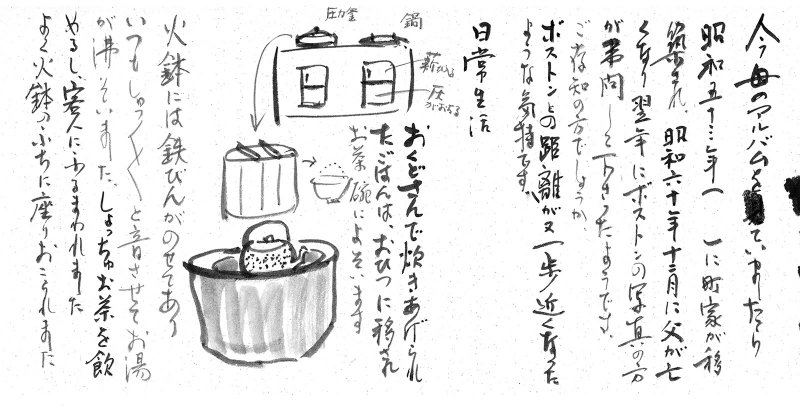 今、母のアルバムを ていましたら
昭和五十三年( 一に町家が移
築され、昭和六十年十二月に父が亡
くなり翌年にボストンの写真の方
が弔問して下さったようです。
ご存知の方でしょうか、
ボストンとの距離が又一歩近くなった
ような気持です。
日常生活
圧力釜
鍋
薪
灰
がおちる
おくどさんで炊きあげられ
たごはんは、おひつに移され
お茶碗によそいます
火鉢には鉄びんがのせてあり
いつもしゅんしゅんと音させてお湯
が沸いていました、しょっちゅうお茶を飲
めるし、客人にふるまわれました
よく火鉢のふちに座りおこられました